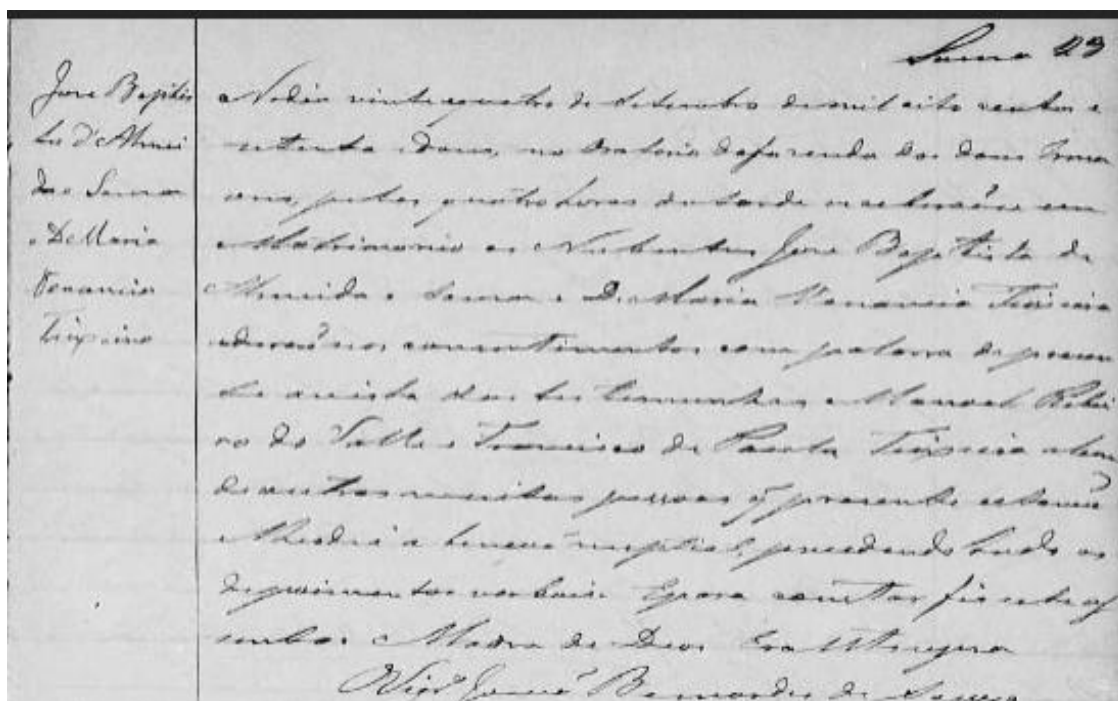 23
José Baptis
ta d'Almei
da e Souza
e D. Maria
Venancia
Teixeira
No dia vinte e quatro de Setembro de mil oito centos e
setenta e dous, no Oratorio da fazenda dos dous Irma
pelas quatro horas da tarde receberão se em
Matrimonio os Nubentes José Baptista de
Almeida e Souza e D. Maria Venancia Teixeira
consentimentos com palavra de presen
te a vista das testemunhas Manoel Ribei
ro do Valle e Francisco de Paula Teixeira alem
de outras muitas pessoas q presente estavão
e lhes dei a benção nupcial, precedendo tudo os
depoimentos verbais. E para constar fiz este
Madre de Deos Era Ut supra
O Vigr.º Bernardes de Souza